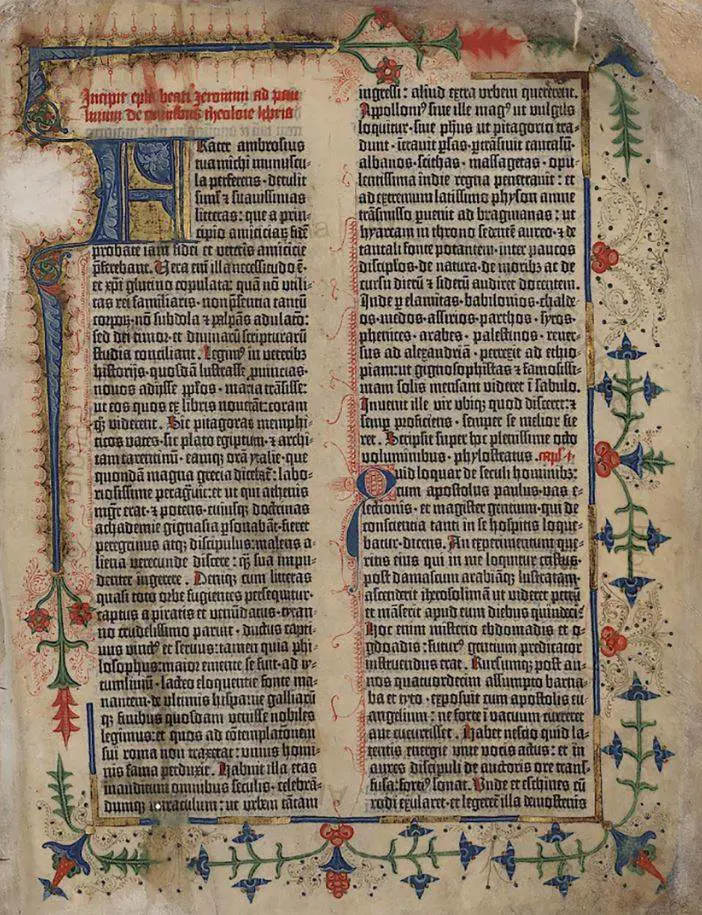 Incipit epl'a beati Jeronimi ad pau
linum de omnibus diuine historie libris
Frater ambrosius
tua michi munuscu-
la perferens · detulit
simul et suauissimas
litteras: que a prin-
cipio amicicia⁊ fidē
probate iam fidei et veteris amicicie
p̃ferebant. Vera em̄ illa necessitudo ē·
et xpi glutino copulata: quam nō utili-
tas rei familiaris· nō presentia tantū
corpoꝝ· nō subdola ⁊ palpās adulacō:
sed dei timor· et diuinaꝝ scripturarū
studia conciliant. Legim⁹ in veterib⁹
historijs· quosdā lustrasse ꝓuincias·
nouos adijsse pp̄los· maria trāsisse:
ut eos quos ex libris nouerāt: coram
qꝫ viderent. Sic pitagoras memphi-
ticos vates· sic plato egiptum· ⁊ archi-
tam tarentinū· eamqꝫ orā ytalie· que
quondā magna grecia dicebat̄: labo-
riosissime peragrauit: et ut qui athenis
mgr̄ erat· ⁊ potens· cuiusqꝫ doctrinas
achademie gignasia ꝑsonabāt· fieret
peregrinus atqꝫ discipulus: malens a-
liena verecunde discere: qꝫ sua impu-
denter ingerere. Deniqꝫ cum litteras
quasi toto orbe fugientes persequitur·
captus a piratis et venūdatus· tyran-
no crudelissimo paruit· ductus capti-
uus vinct⁹ et seruus: tamen quia phi-
losophus: maior emente se fuit· ad ty-
tumliuiū· lacteo eloquentie fonte ma-
nantem· de vltimis hispanie galliarū
qꝫ finibus quosdam venisse nobiles
legimus: et quos ad cōtemplationem
sui roma non traxerat: vnius homi-
nis fama perduxit. Habuit illa etas
inauditum omnibus seculis· celebrā-
dumqꝫ miraculum: ut urbem tātam
ingressi: aliud extra urbem quererent.
Appolloni⁹ siue ille mag⁹ ut vulgus
loquitur· siue ph̄us ut pitagorici tra-
dunt· ītrauit ꝑsas· ꝑtrāsiuit caucasū·
albanos· scithas· massagetas· opu-
lentissima indie regna penetrauit: et
ad extremum latissimo physon amne
trāsmisso ꝑuenit ad bragmanas: ut
hyarcam in throno sedentē aureo· ⁊ de
tantali fonte potantem· inter paucos
discipl̄os· de natura· de moribꝫ ac de
cursu dieꝝ ⁊ siderū audiret docentem.
Inde ꝑ elamitas· babilonios· chalde-
os· medos· assirios· parthos· syros·
phenices· arabes· palestinos· reuer-
sus ad alexandriā· perrexit ad ethio-
piam: ut gignosophistas ⁊ famosissi-
mam solis mensam videret ī sabulo.
Inuenit ille vir vbiqꝫ quod disceret: ⁊
semꝑ proficiens· semper se melior fie-
ret. Scripsit super hoc plenissime octo
voluminibus· phylostratus.
Quid loquar de seculi hominibꝫ:
cum apostolus paulus· vas e-
lectionis· et magister gentium· qui de
conscientia tanti in se hospitis loque-
batur· dicens. An experimentum que-
ritis eius qui in me loquitur cristus·
post damascum arabiāqꝫ lustratam·
ascenderit iherosolimā ut videret petrū
et māserit apud eum diebus quindeci·
Hoc enim misterio ebdomadis et o-
gdoadis: futur⁹ gentium predicator
instruendus erat. Rursumqꝫ post an-
nos quatuordecim assumpto barna-
ba et tyto· exposuit cum apostolis eu-
angelium: ne forte ī vacuum curreret
aut cucurrisset. Habet nescio quid la-
tentis energie viue vocis actus: et in
aures discipuli de auctoris ore trans-
fusa: forti⁹ sonat. Vnde et eschines cū
rodi exularet· et legeretᷣ illa demosthenis